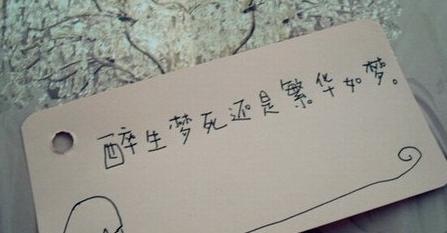 醉生梦死还是繁华如梦。